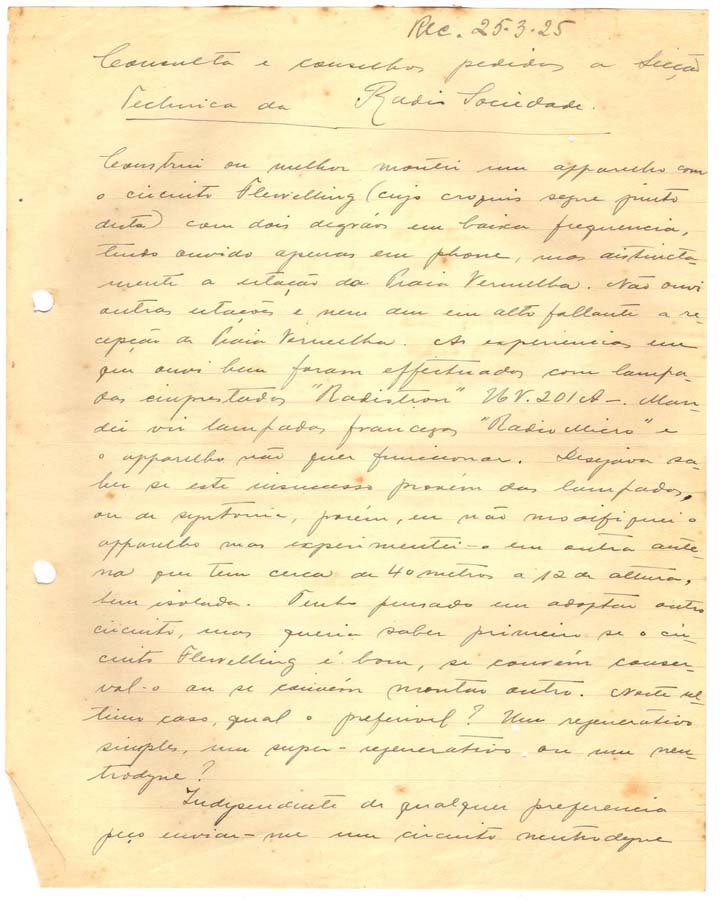 Rec. 25.3.25
Consulta e conselhos pedidos a Secção
Technica da Radio Sociedade.
Construi ou melhor montei um apparelho com
o circuito Flewelling (cujo croquis segue junto
desta) com dois degráos em baixa frequencia,
tendo ouvido apenas em phone, mas distincta-
mente a estação da Praia Vermelha. Não ouvi
outras estações e nem deu em alto fallante a re-
cepção da Praia Vermelha. As experiencias em
que ouvi bem foram effectuados com lampa-
das emprestadas "Radiotron" U.V. 201A-. Man-
dei vir lampadas francezas "Radio Micro" e
o apparelho não quer funccionar. Desejava sa-
ber se este insucesso provém das lampadas,
ou de syntonia, porém, eu não modifiquei o
apparelho mas experimentei-o em outra ante-
na que tem cerca de 40 metros a 12 de altura,
bem isolada. Tenho pensado em adoptar outro
circuito, mas queria saber primeiro se o cir-
cuito Flewelling é bom, se convém conser-
val-o ou se convém montar outro. Neste ul-
timo caso, qual o preferivel? Um regenerativo
simples, um super-regenerativo ou um neu-
trodyne?
Independente de qualquer preferencia
peço enviar-me um circuito neutrodyne